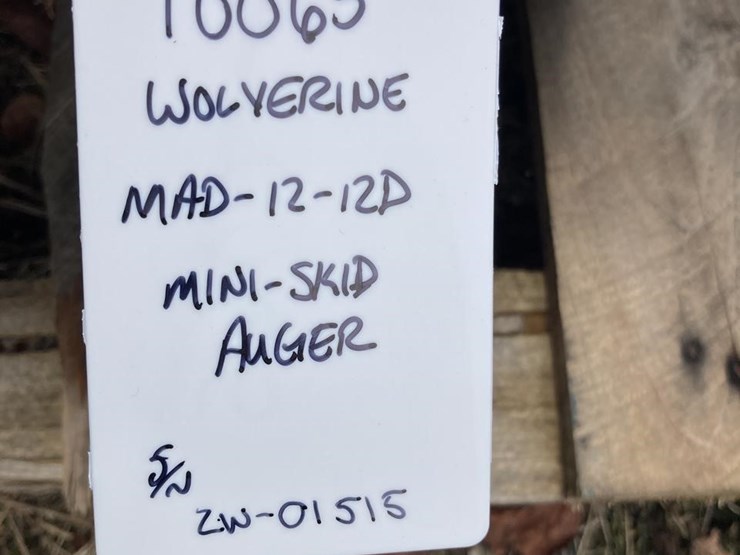 10065
WOLVERINE
MAD-12-12D
MINI-SKID
AUGER
S/N
ZW-01515